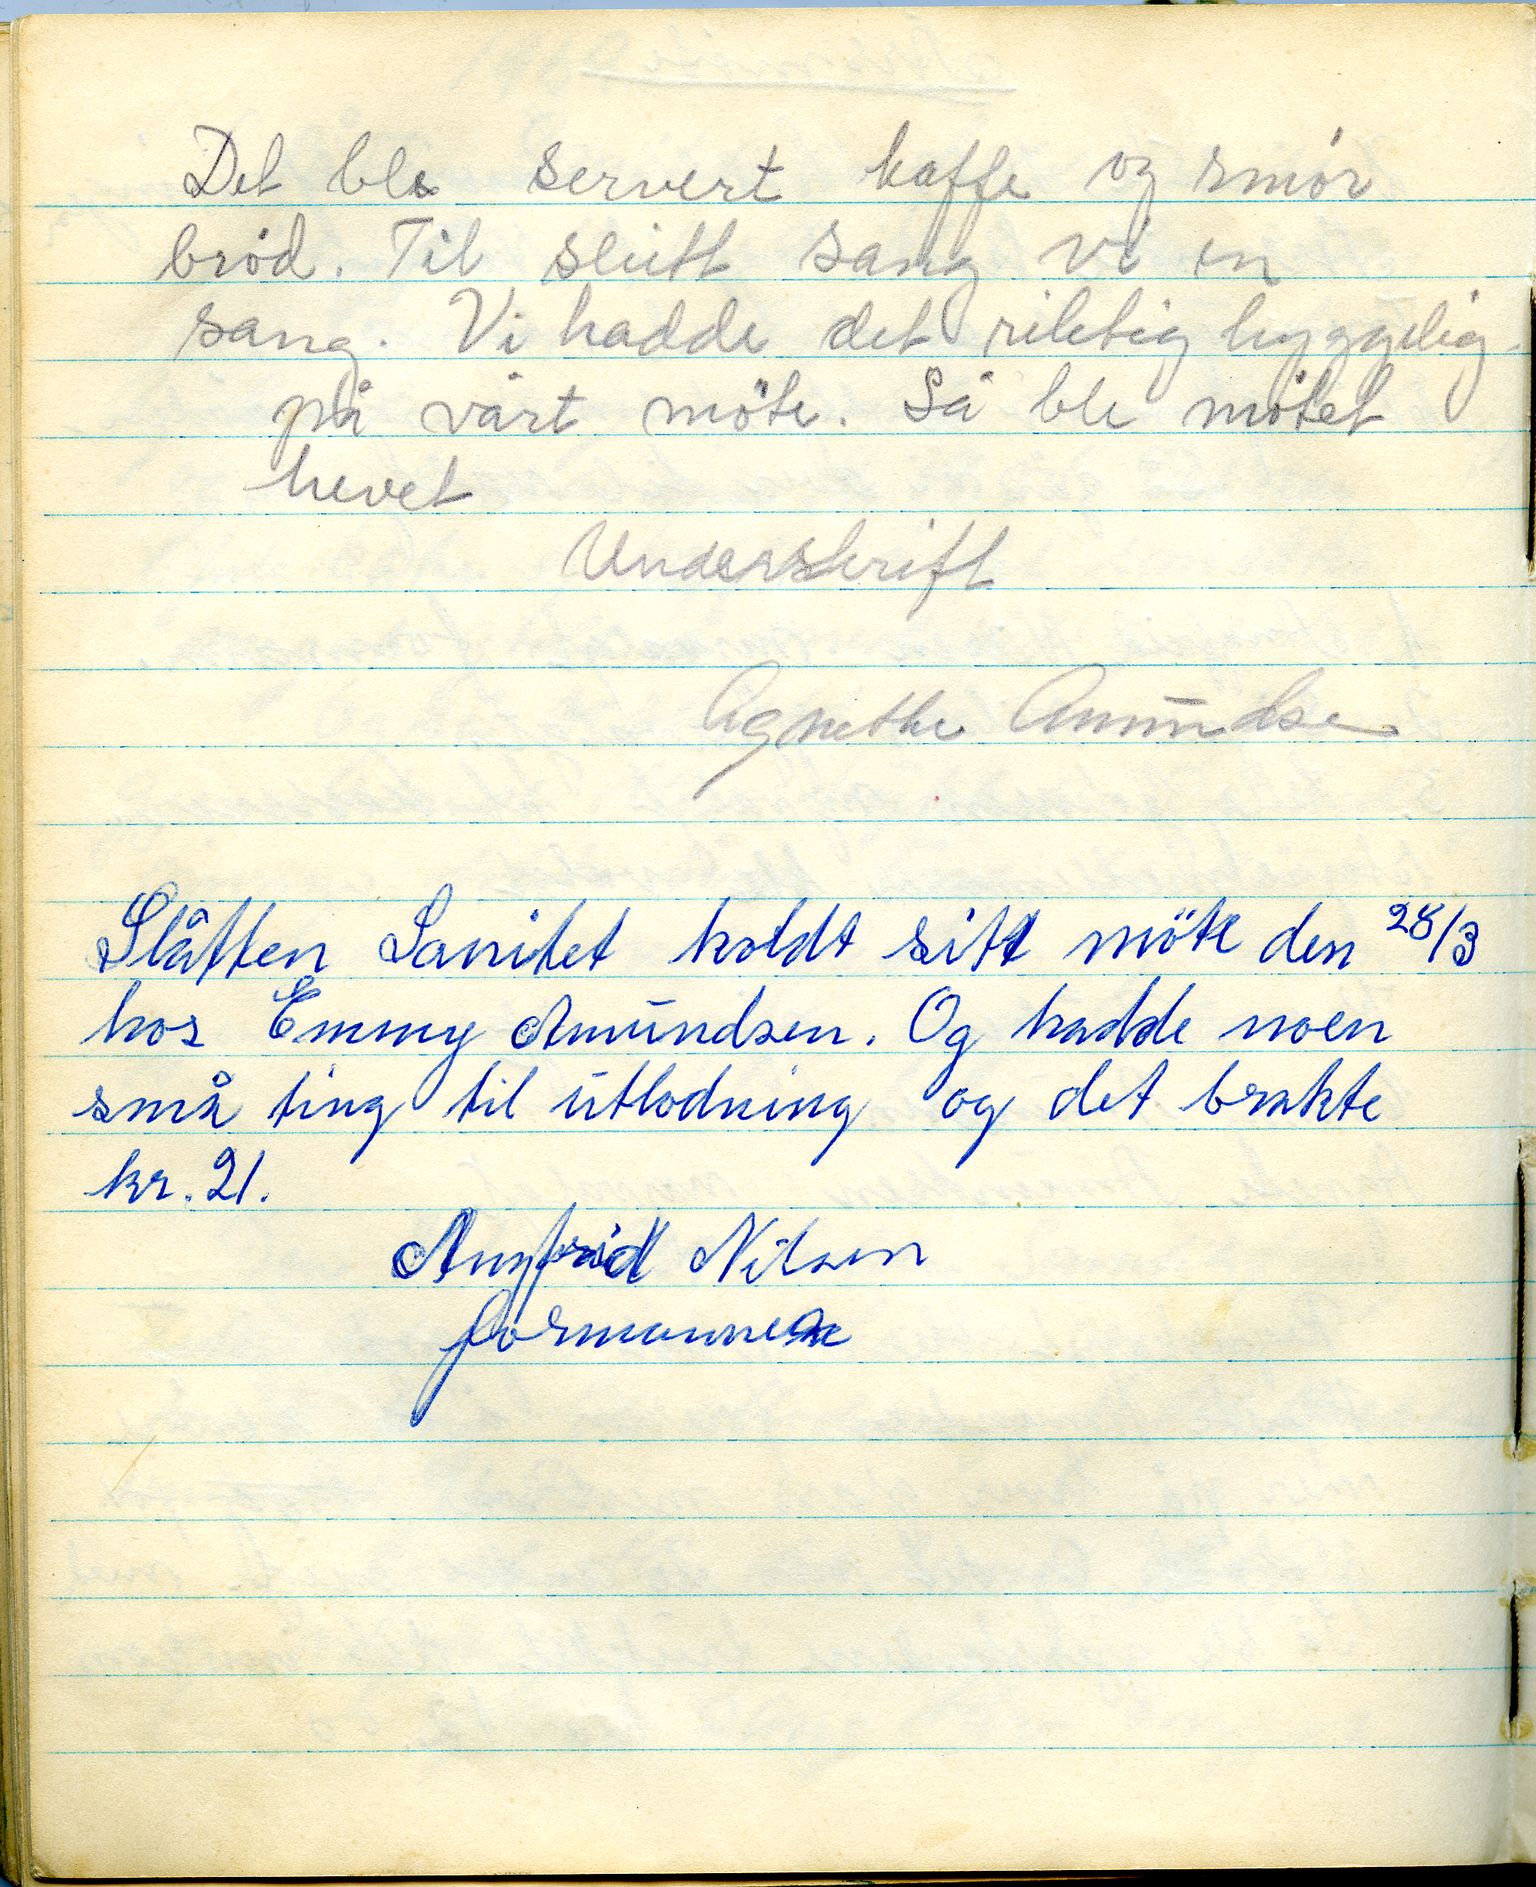 Det ble servert kaffe og smör
bröd. Til slutt sang vi en
sang. Vi hadde det riktig hyggelig
på vårt möte. Så ble mötet
hevet
Underskrift
Agnethe Amundsen
Slåtten Sanitet holdt sitt möte den 28/3
hos Emmy Amundsen. Og hadde noen
små ting til utlodning og det brakte
kr. 21.
Angfrid Nilsen
formannen